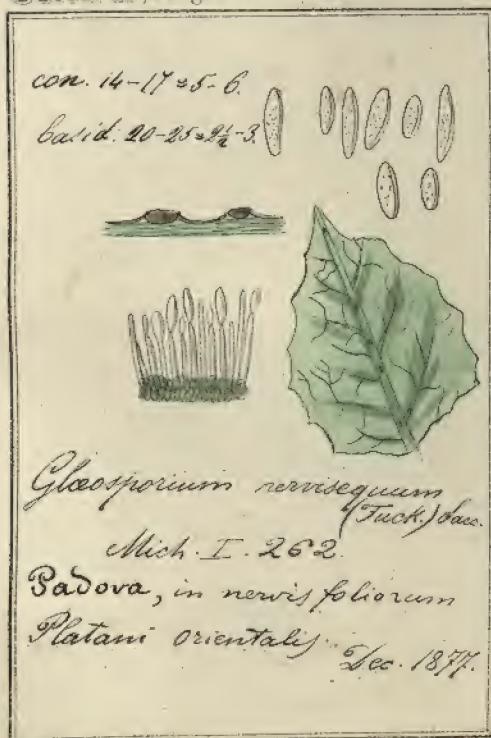 con. 14-17 = 5-6.
basid. 20-25 = 2½-3.
Glœosporium nervisequum
(Fuck.) Sacc.
Mich. I. 262.
Padova, in nervis foliorum
Platani orientalis.
Dec. 1877.